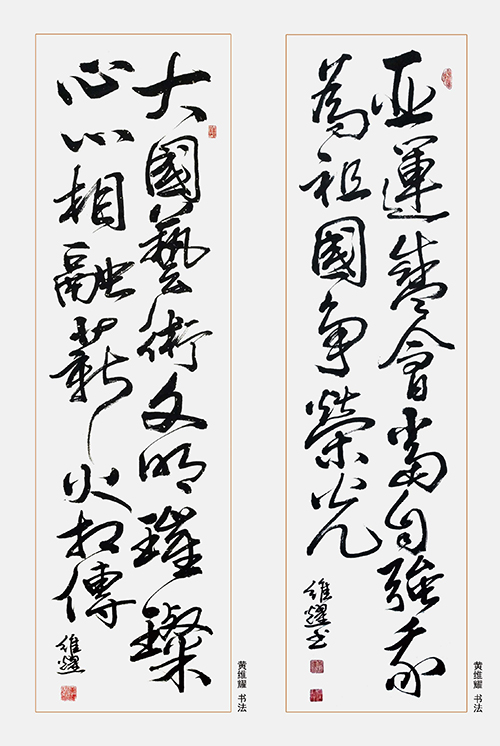 亞運盛會當自強我
為祖國争榮光
維耀书
黄维耀 书法
大國藝術文明璀璨
心心相融薪火相傳
維耀
黄维耀 书法